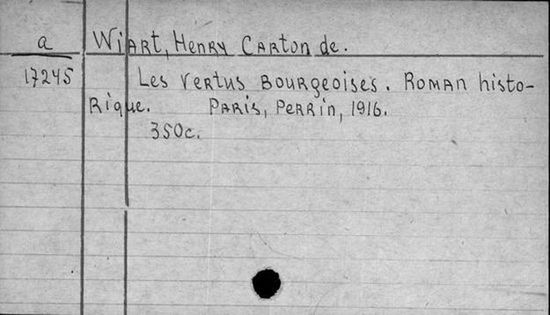 a
Wiart, Henry Carton de.
17245
Les vertus bourgeoises. Roman histo-
rique. Paris, Perrin, 1916.
350c.